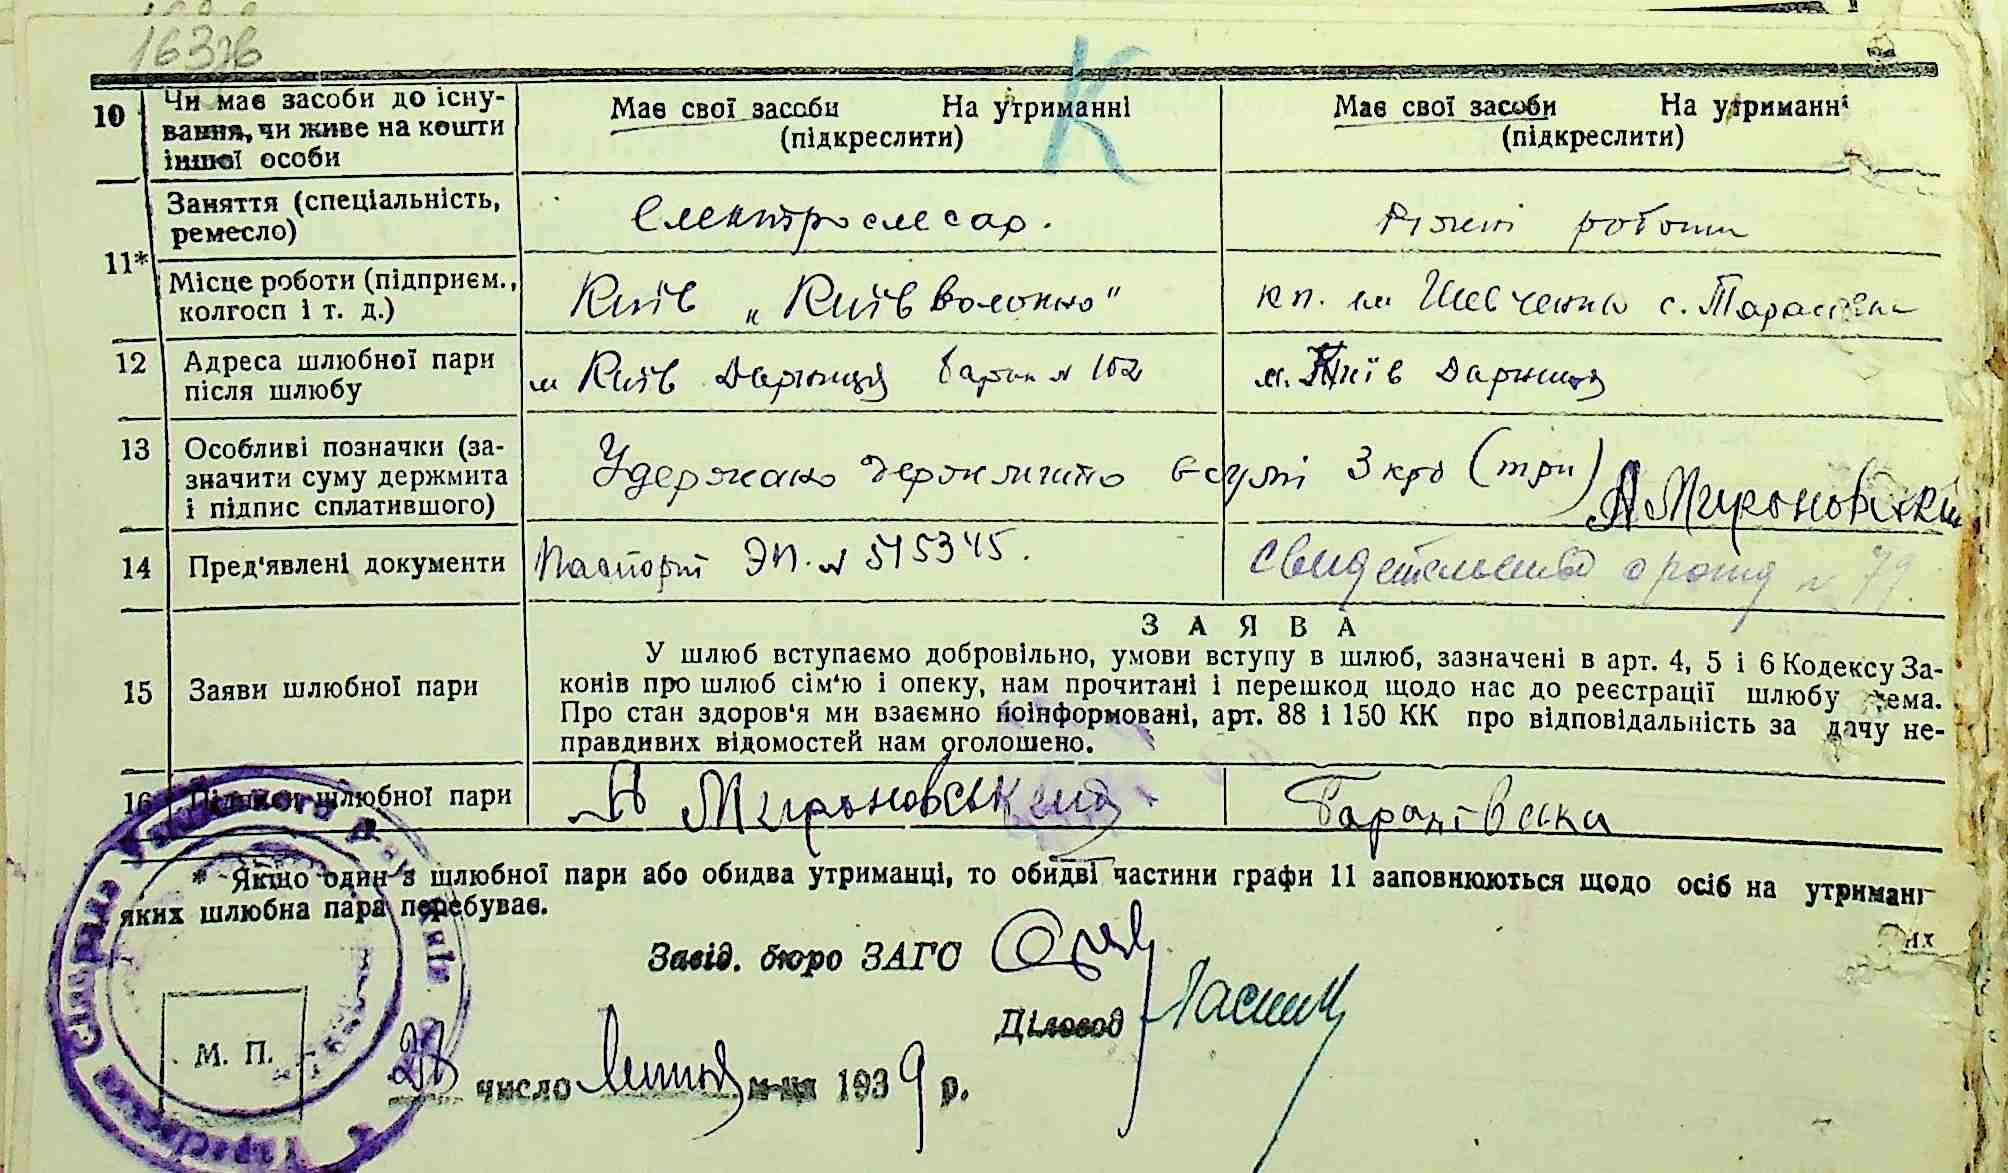 163зв
К
10 Чи має засоби до існу-
вання, чи живе на кошти
іншої особи
Має свої засоби На утриманні
(підкреслити)
Має свої засоби На утриманні
(підкреслити)
11*
Заняття (спеціальність,
ремесло)
Електрослесар.
Різні роботи
Місце роботи (підприєм.,
колгосп і т. д.)
Київ „Київволокно"
кп. ім Шевченко с. Тарасівки
12 Адреса шлюбної пари
після шлюбу
м Київ Дарниця барак № 102
м. Київ Дарниця
13 Особливі позначки (за-
значити суму держмита
і підпис сплатившого)
Удержано держмито в сумі 3 крб (три) А Мироновський
14 Пред'явлені документи
Паспорт ЭП. № 515345.
Свидетельство о рожд № 79.
15 Заяви шлюбної пари
ЗАЯВА
У шлюб вступаємо добровільно, умови вступу в шлюб, зазначені в арт. 4, 5 і 6 Кодексу За-
конів про шлюб сім'ю і опеку, нам прочитані і перешкод щодо нас до реєстрації шлюбу нема.
Про стан здоров'я ми взаємно поінформовані, арт. 88 і 150 КК про відповідальність за дачу не-
правдивих відомостей нам оголошено.
16 Підписи шлюбної пари
А Мироновський
* Якщо один з шлюбної пари або обидва утриманці, то обидві частини графи 11 заповнюються щодо осіб на утриманні
яких шлюбна пара перебуває.
Завід. бюро ЗАГС
Діловод
М. П.
число Липня м-ця 1939 р.